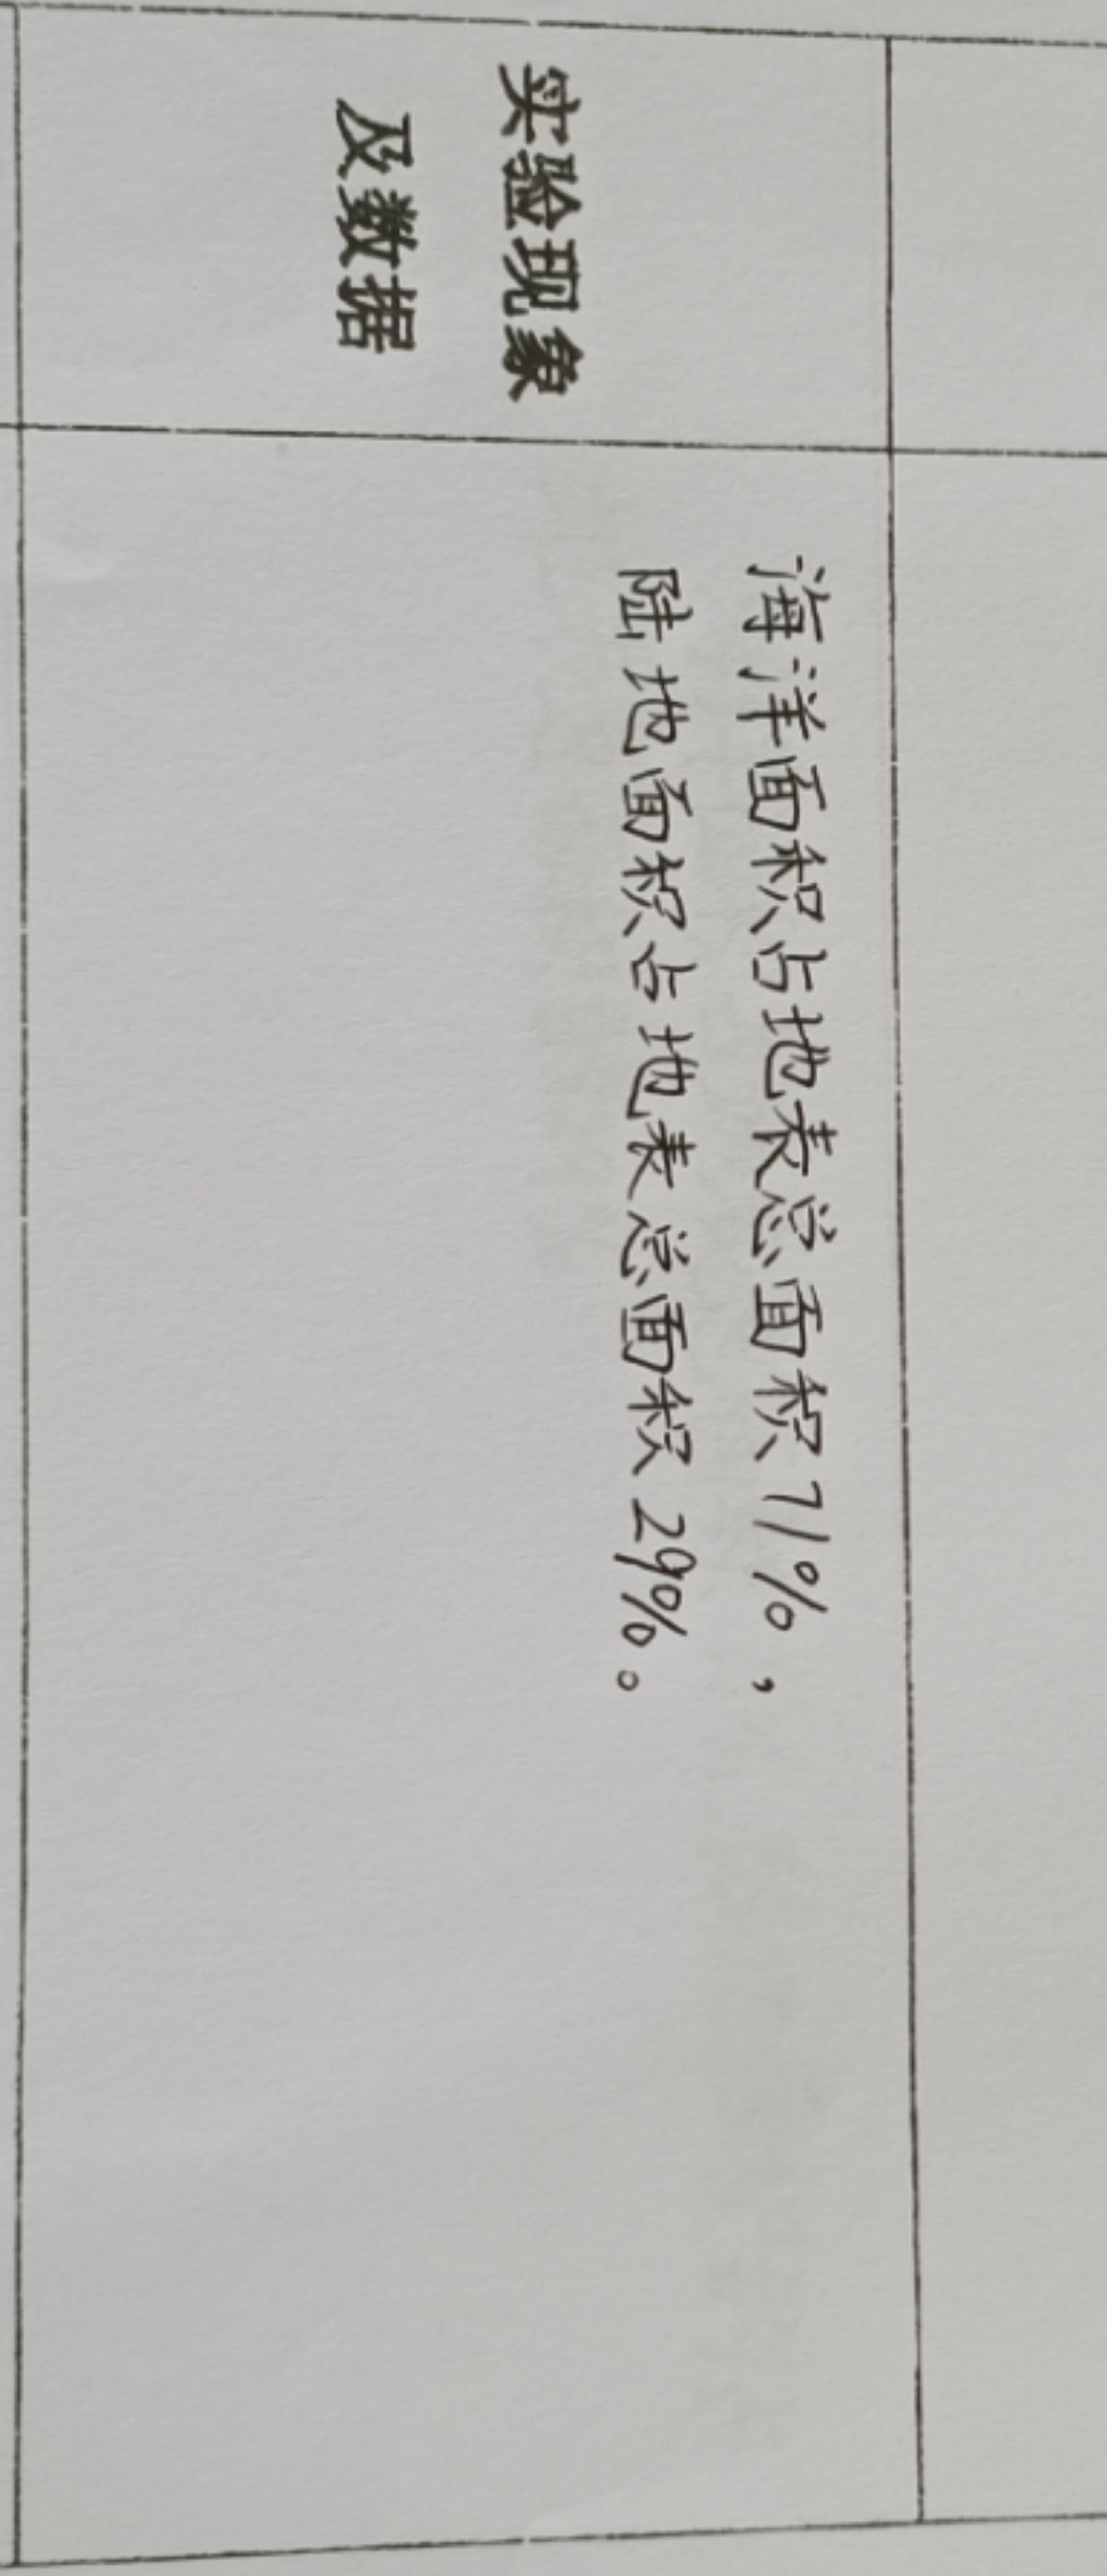 实验现象
及数据
海洋面积占地表总面积71%，
陆地面积占地表总面积29%。